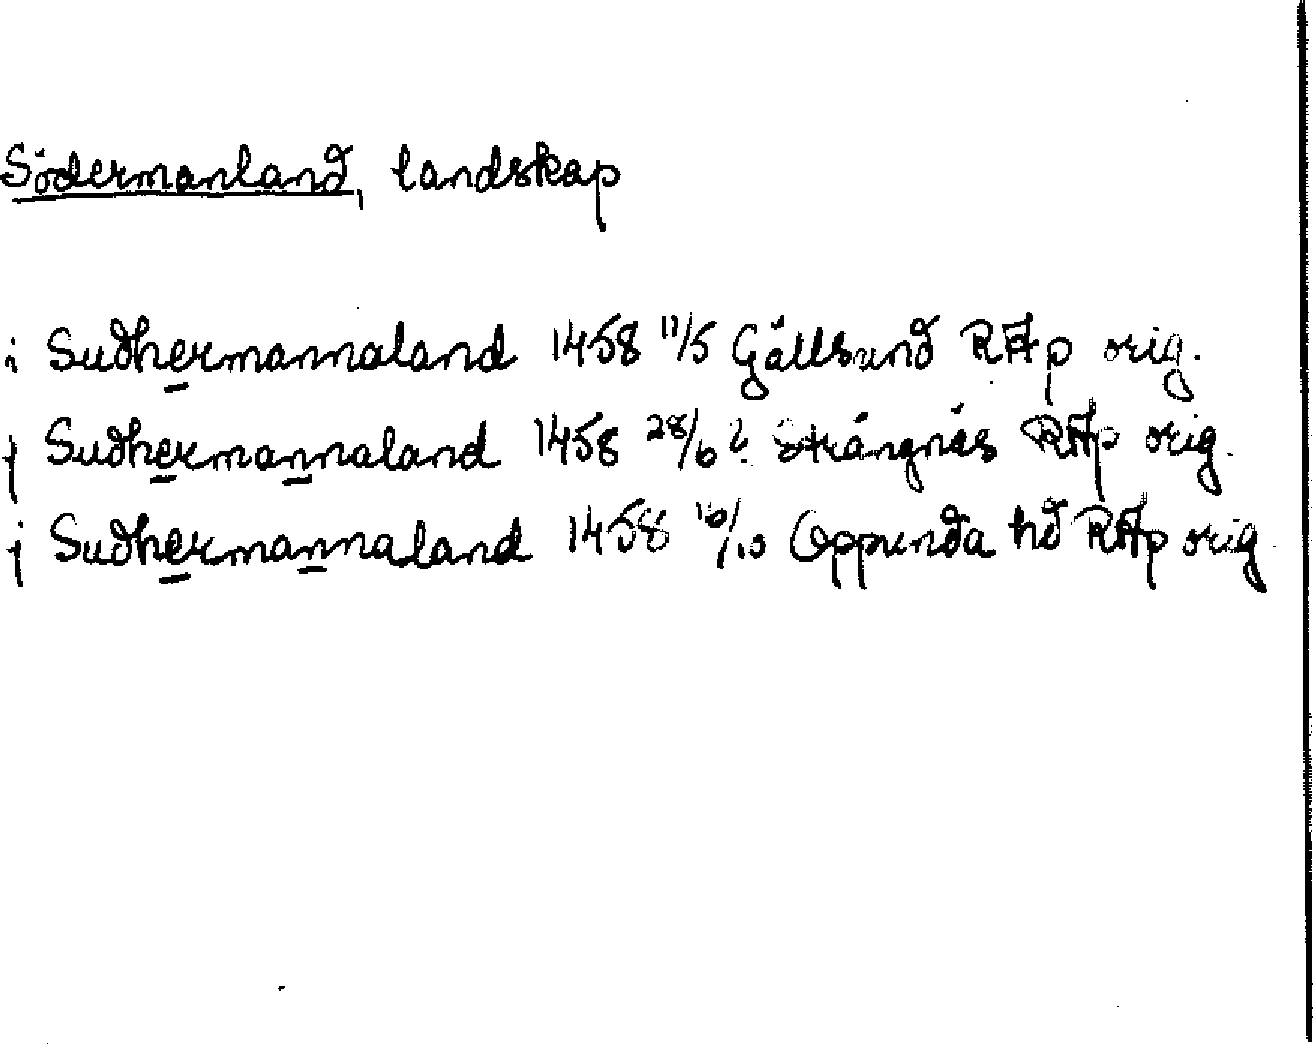 Södermanland, landskap
i Sudhermannaland 1458 11/5 Gällsund RAp orig.
j Sudhermannaland 1458 28/6? Strängnäs RAp orig.
j Sudhermannaland 1458 10/10 Oppunda hd RAp orig